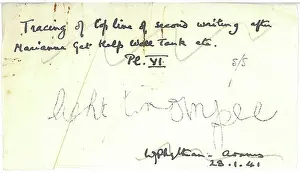 Tracing of top line of second writing after
Marianne Get Help Well Tank etc.
Pl. VI.
s/s
light in
W J Phythian-Adams
28.1.41